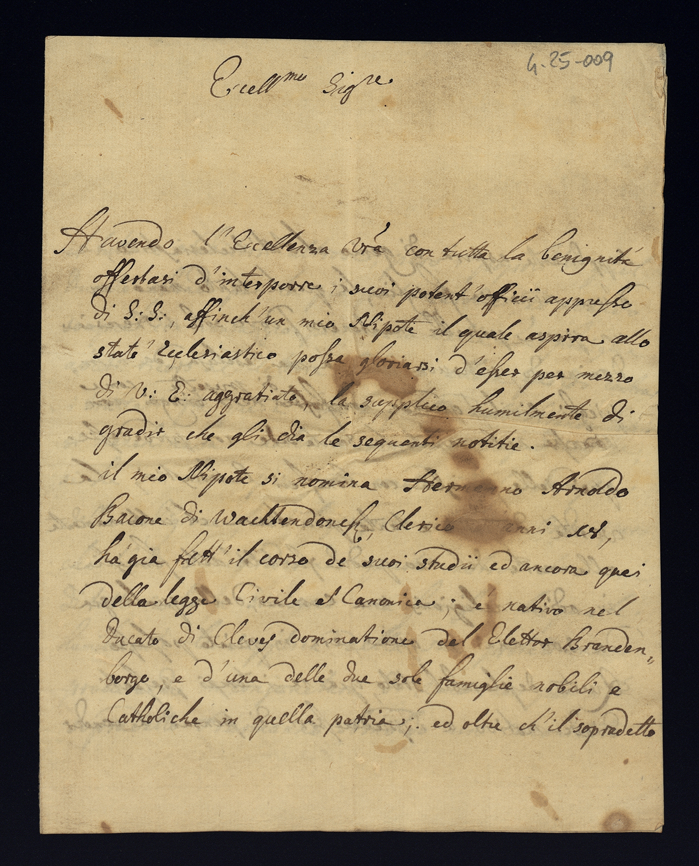 4.25-009
Eccell.mo Sig.re
Havendo l'Eccellenza Vrã con tutta la benignità
offertasi d'interporre i suoi potent'officii appresso
di S: S:, affinch'un mio Nipote il quale aspira allo
stato Ecclesiastico possa gloriarsi d'esser per mezzo
di V: E: aggratiato, la supplico humilmente di
gradir che gli dia le seguenti notitie.
il mio Nipote si nomina Hermanno Arnoldo
Barone di Wachtendonck, Clerico anni
ha gia fatt'il corso de suoi studii ed ancora quei
della legge Civile et Canonica; e nativo nel
Ducato di Cleves dominatione del Elettor Branden„
borgo, e d'una delle due sole famiglie nobili e
Catholiche in quella patria; ed oltre ch'il sopradetto